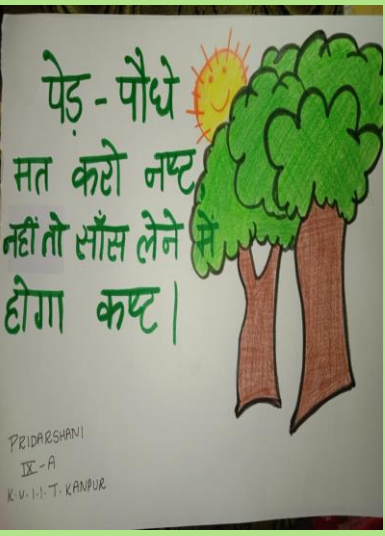 पेड़ - पौधे
मत करो नष्ट,
नहीं तो साँस लेने में
होगा कष्ट।
PRIDARSHANI
IX - A
K.V. I.I.T. KANPUR